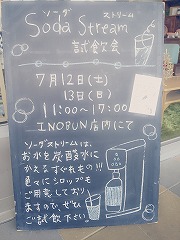 ソーダ ストリーム
Soda Stream
試飲会
7月12日(土)
13日(日)
11:00~17:00
INOBUN店内にて
ソーダストリームは、
お水を炭酸水に
かえるすぐれもの!!!
色々にシロップも
ご用意しており
ますので、ぜひ
ご試飲下さい。